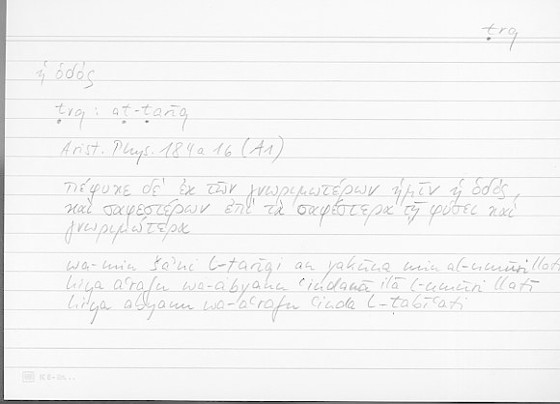 ṭrq
ἡ ὁδός
ṭrq : aṭ-ṭarīq
Arist. Phys. 184a16 (A1)
πέφυκε δὲ ἐκ τῶν γνωριμωτέρων ἡμῖν ἡ ὁδός,
καὶ σαφεστέρων ἐπὶ τὰ σαφέστερα τῇ φύσει καὶ
γνωριμώτερα
wa-min šaʾni l-ṭarīqi an yakūna min al-umūri llatī
hiya aʿrafu wa-abyanu ʿindanā ilā l-umūri llatī
hiya abyanu wa-aʿrafu ʿinda l-ṭabīʿati